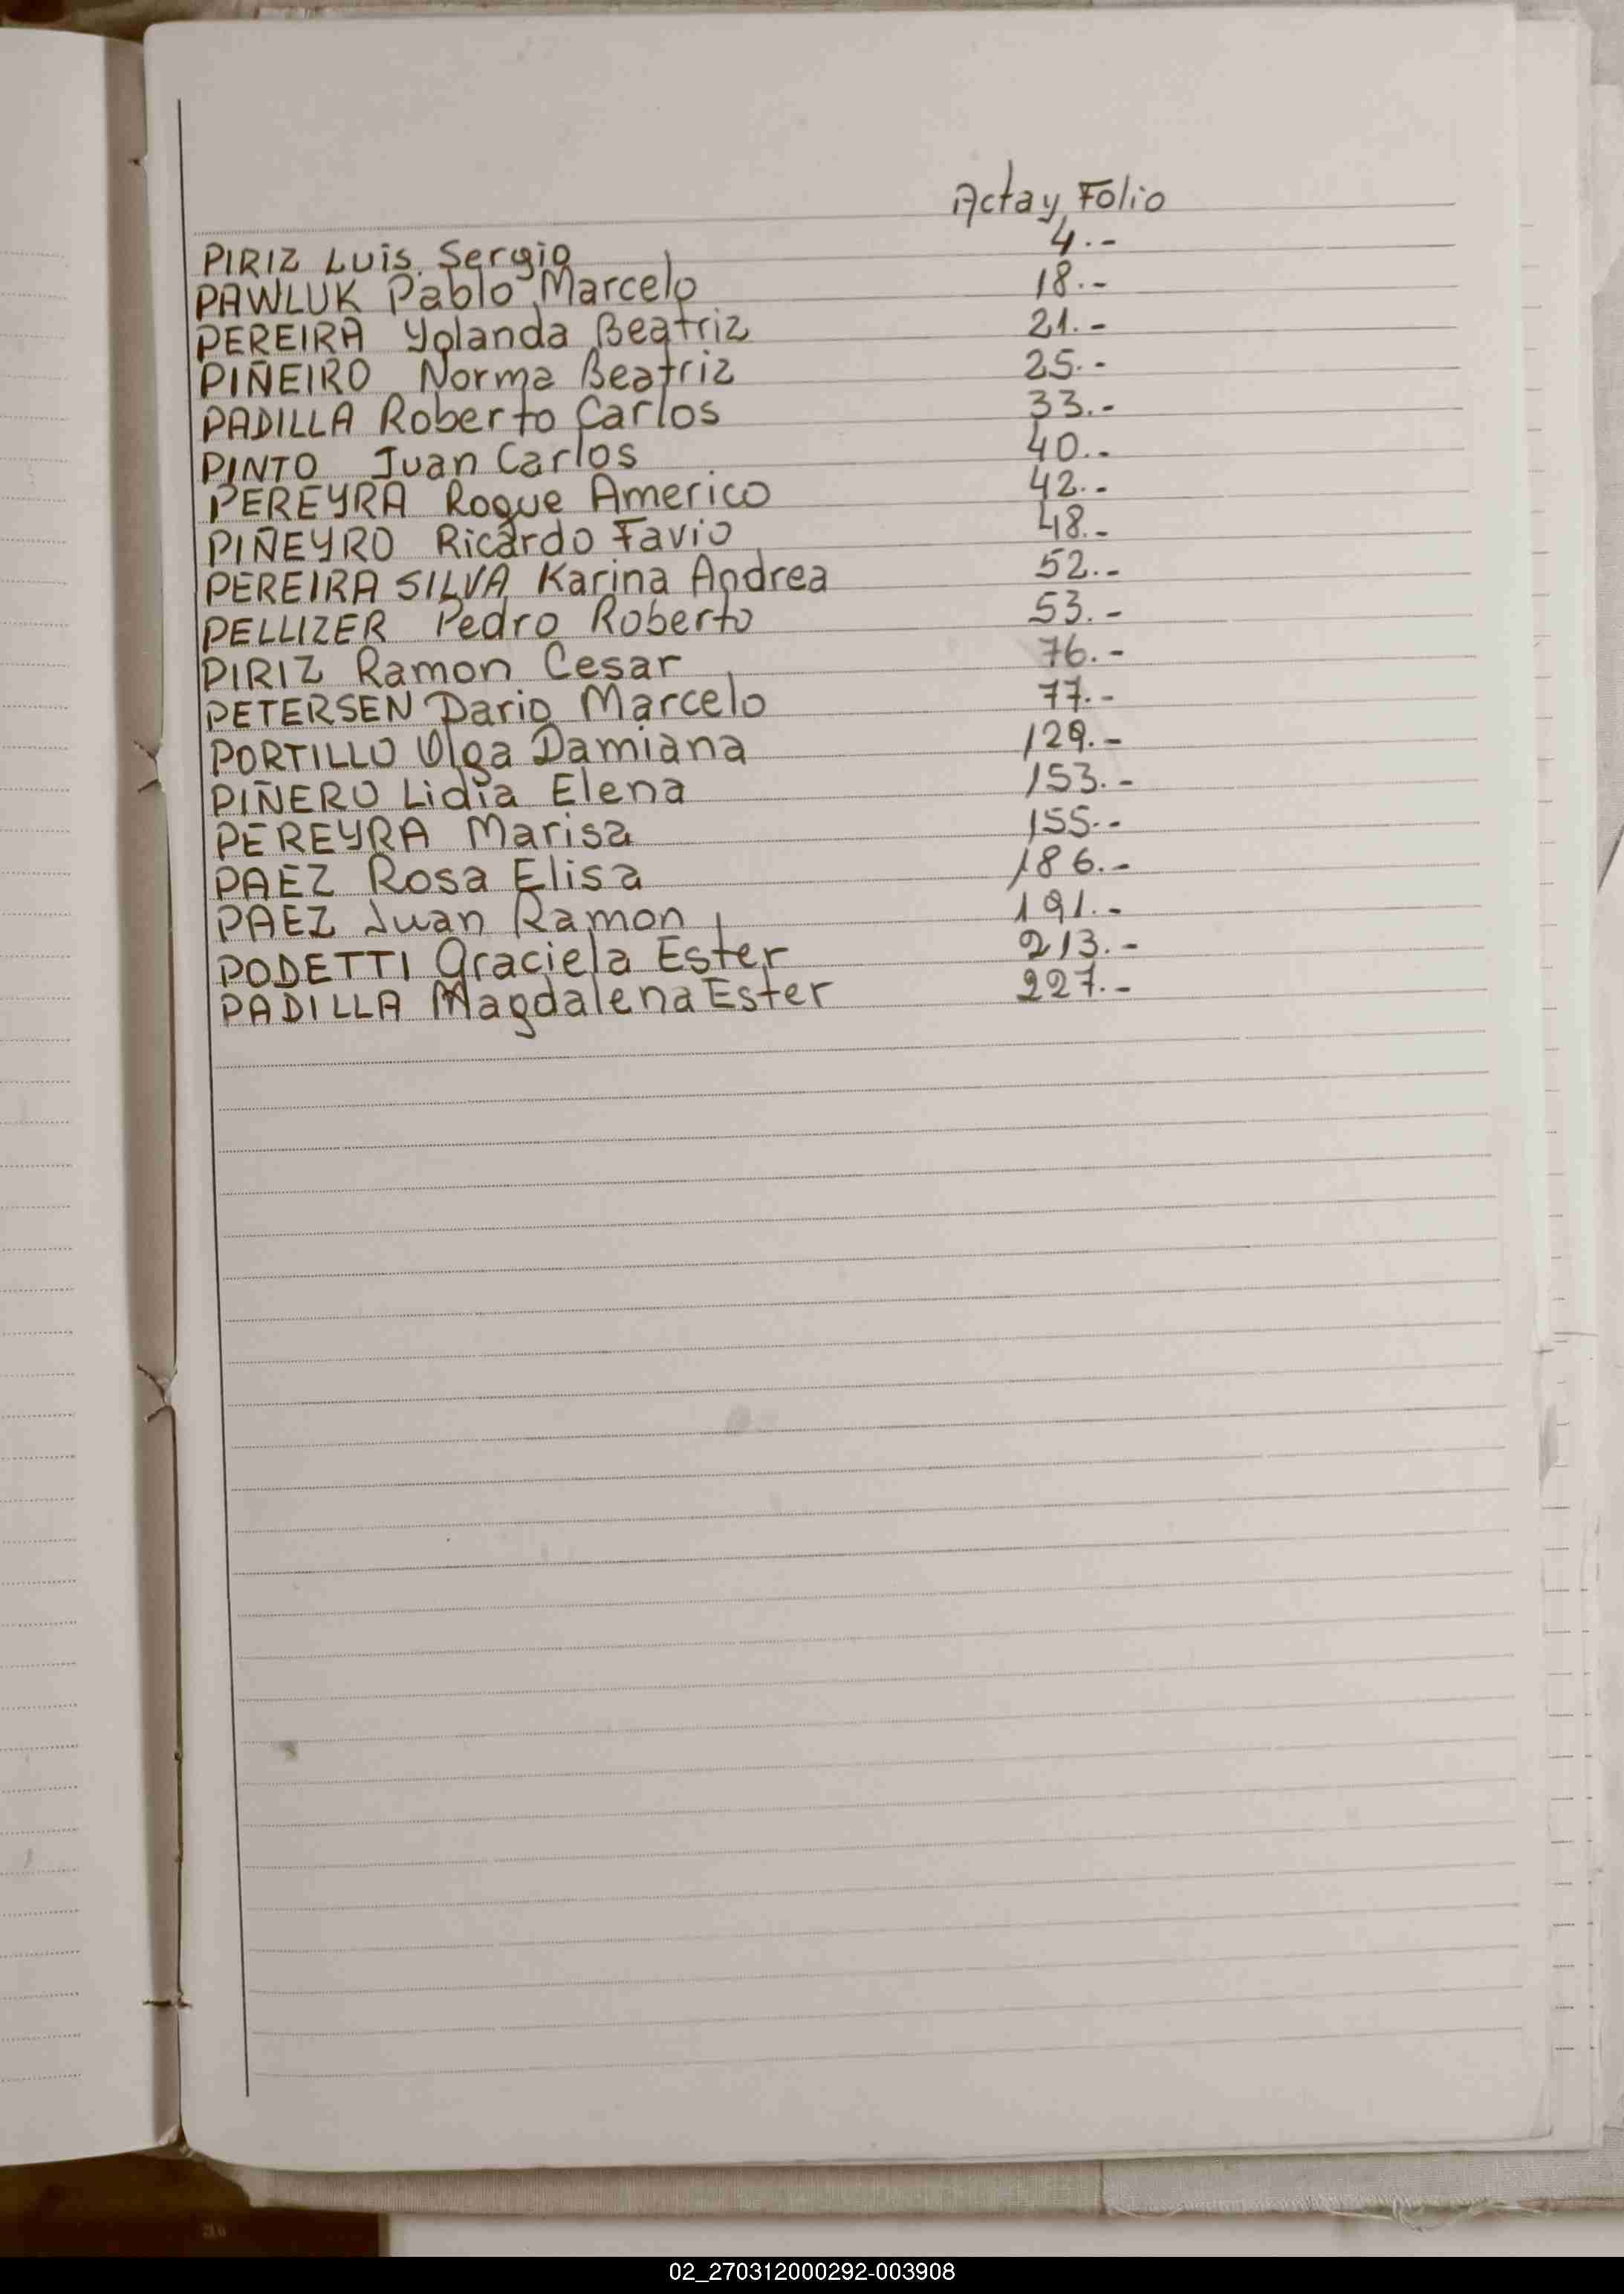 Acta y Folio
PIRIZ Luis Sergio 4.-
PAWLUK Pablo Marcelo 18.-
PEREIRA Yolanda Beatriz 21.-
PIÑEIRO Norma Beatriz 25.-
PADILLA Roberto Carlos 33.-
PINTO Juan Carlos 40.-
PEREYRA Roque Americo 42.-
PIÑEYRO Ricardo Favio 48.-
PEREIRA SILVA Karina Andrea 52.-
PELLIZER Pedro Roberto 53.-
PIRIZ Ramon Cesar 76.-
PETERSEN Dario Marcelo 77.-
PORTILLO Olga Damiana 129.-
PIÑERO Lidia Elena 153.-
PEREYRA Marisa 155.-
PAEZ Rosa Elisa 186.-
PAEZ Juan Ramon 191.-
PODETTI Graciela Ester 213.-
PADILLA Magdalena Ester 227.-
02_270312000292-003908